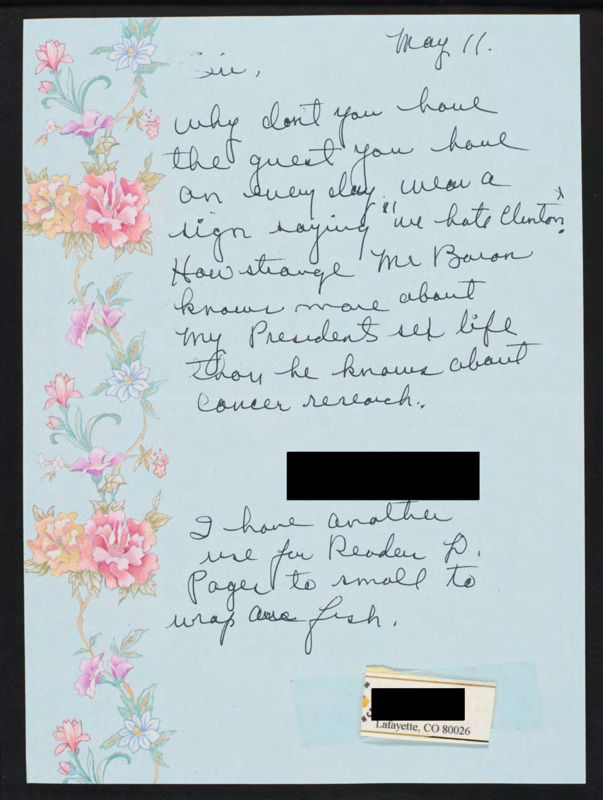 May 11.
Sir,
Why don't you have
the guest you have
on every day wear a
sign saying "we hate Clinton"?
How strange Mr Baron
knows more about
my Presidents sex life
than he knows about
cancer research.
I have another
use for Reader D.
Pages to small to
wrap fish.
Lafayette, CO 80026